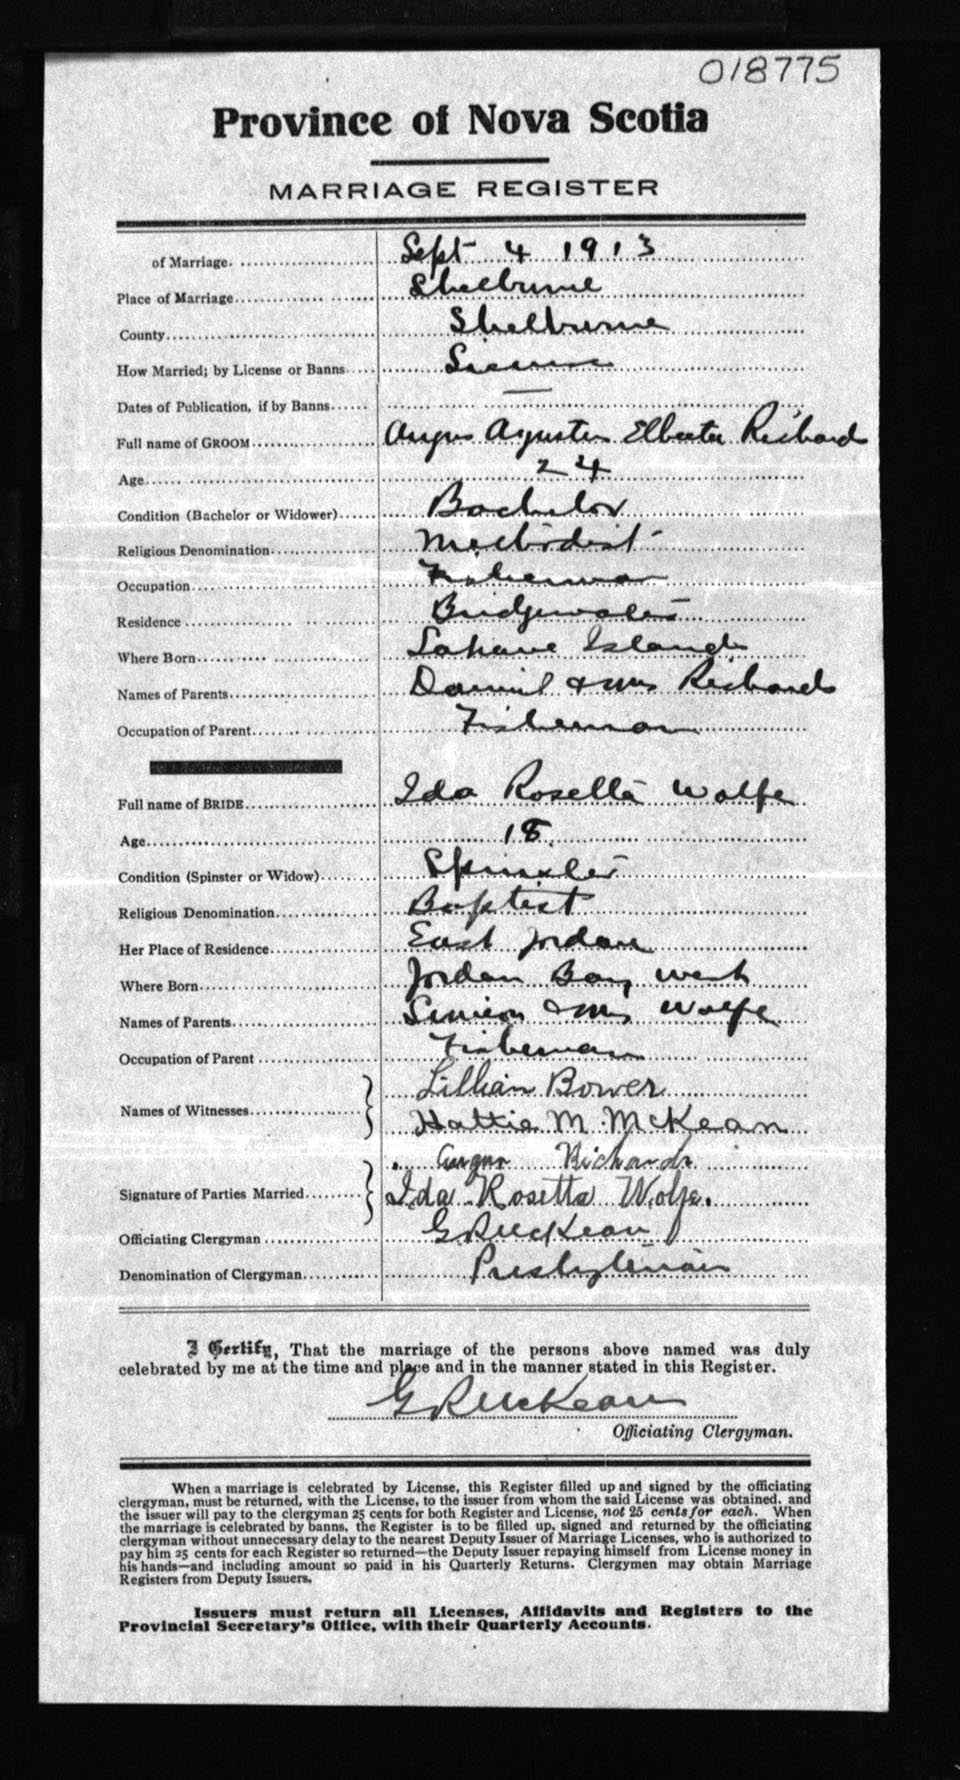 018775
Province of Nova Scotia
MARRIAGE REGISTER
of Marriage. Sept 4 1913
Place of Marriage Shelburne
County Shelburne
How Married; by License or Banns License
Dates of Publication, if by Banns —
Full name of GROOM Angus Agustus Richards
Age 24
Condition (Bachelor or Widower) Bachelor
Religious Denomination Methodist
Occupation Fisherman
Residence Bridgewater
Where Born Lahave Islands
Names of Parents Daniel & Mrs Richards
Occupation of Parent Fisherman
Full name of BRIDE Ida Rosetta Wolfe
Age 18
Condition (Spinster or Widow) Spinster
Religious Denomination Baptist
Her Place of Residence East Jordan
Where Born Jordan Bay West
Names of Parents Simeon & Mrs Wolfe
Occupation of Parent Fisherman
Names of Witnesses Lillian Bower
Hattie M. McKean
Angus Richards
Signature of Parties Married Ida Rosetta Wolfe.
Officiating Clergyman G R McKean
Denomination of Clergyman Presbyterian
I Certify, That the marriage of the persons above named was duly
celebrated by me at the time and place and in the manner stated in this Register.
G R McKean
Officiating Clergyman.
When a marriage is celebrated by License, this Register filled up and signed by the officiating
clergyman, must be returned, with the License, to the issuer from whom the said License was obtained, and
the issuer will pay to the clergyman 25 cents for both Register and License, not 25 cents for each. When
the marriage is celebrated by banns, the Register is to be filled up, signed and returned by the officiating
clergyman without unnecessary delay to the nearest Deputy Issuer of Marriage Licenses, who is authorized to
pay him 25 cents for each Register so returned—the Deputy Issuer repaying himself from License money in
his hands—and including amount so paid in his Quarterly Returns. Clergymen may obtain Marriage
Registers from Deputy Issuers.
Issuers must return all Licenses, Affidavits and Registers to the
Provincial Secretary's Office, with their Quarterly Accounts.